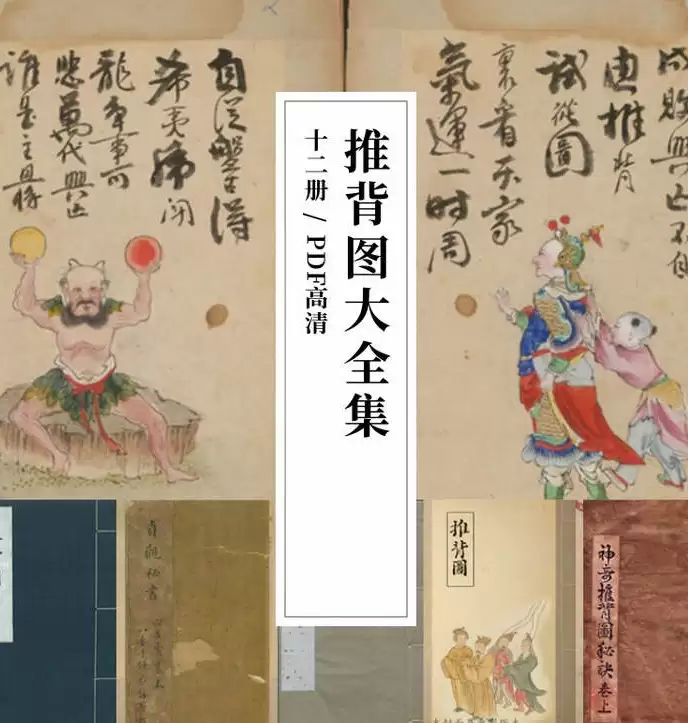 推背图大全集
十二册 / PDF高清
成敗興亡不自
由推背
試從圖
裏看天家
氣運一時周
自從盤古淂
希夷虎鬪
龍爭事可
悲萬代興亡
誰是主且將
貞觀秘書
推背圖
神奇推背圖秘訣卷上